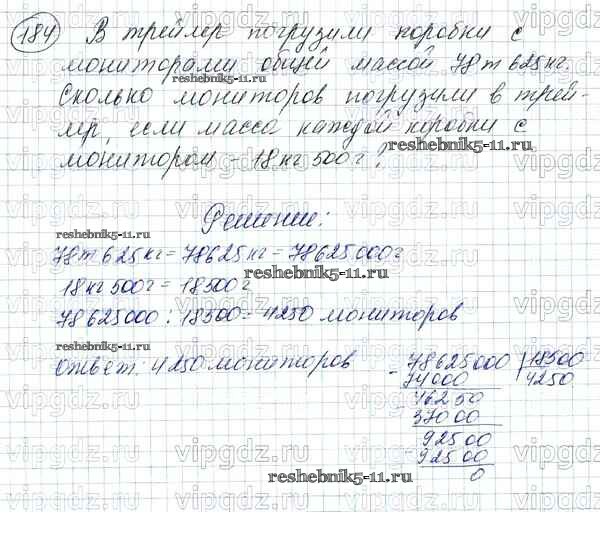 184 В трейлер погрузили коробки с
мониторами общей массой 78т 625кг.
Сколько мониторов погрузили в трей-
лер, если масса каждой коробки с
монитором - 18кг 500г?
Решение:
78т 625кг = 78625кг = 78625000г
18кг 500г = 18500г
78625000 : 18500 = 4250 мониторов
Ответ: 4250 мониторов
- 78625000 | 18500
74000 4250
- 46250
37000
- 92500
92500
0
reshebnik5-11.ru
reshebnik5-11.ru
reshebnik5-11.ru
reshebnik5-11.ru
reshebnik5-11.ru
reshebnik5-11.ru
vipgdz.ru